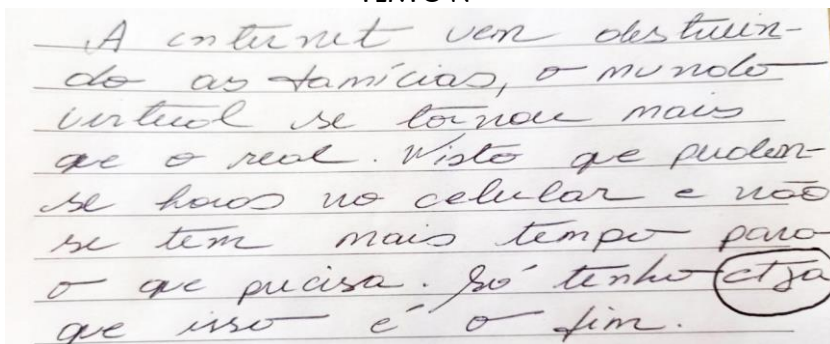 A internet vem destruin-
do as famícias, o mundo
virtual se tornou mais
que o real. Visto que perdem-
se horas no celular e não
se tem mais tempo para
o que precisa. Só tenho ctza
que isso é o fim.